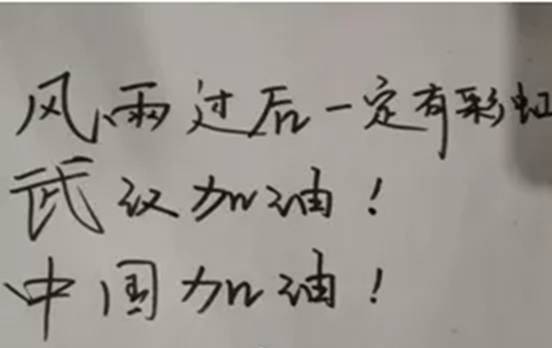 风雨过后一定有彩虹
武汉加油！
中国加油！